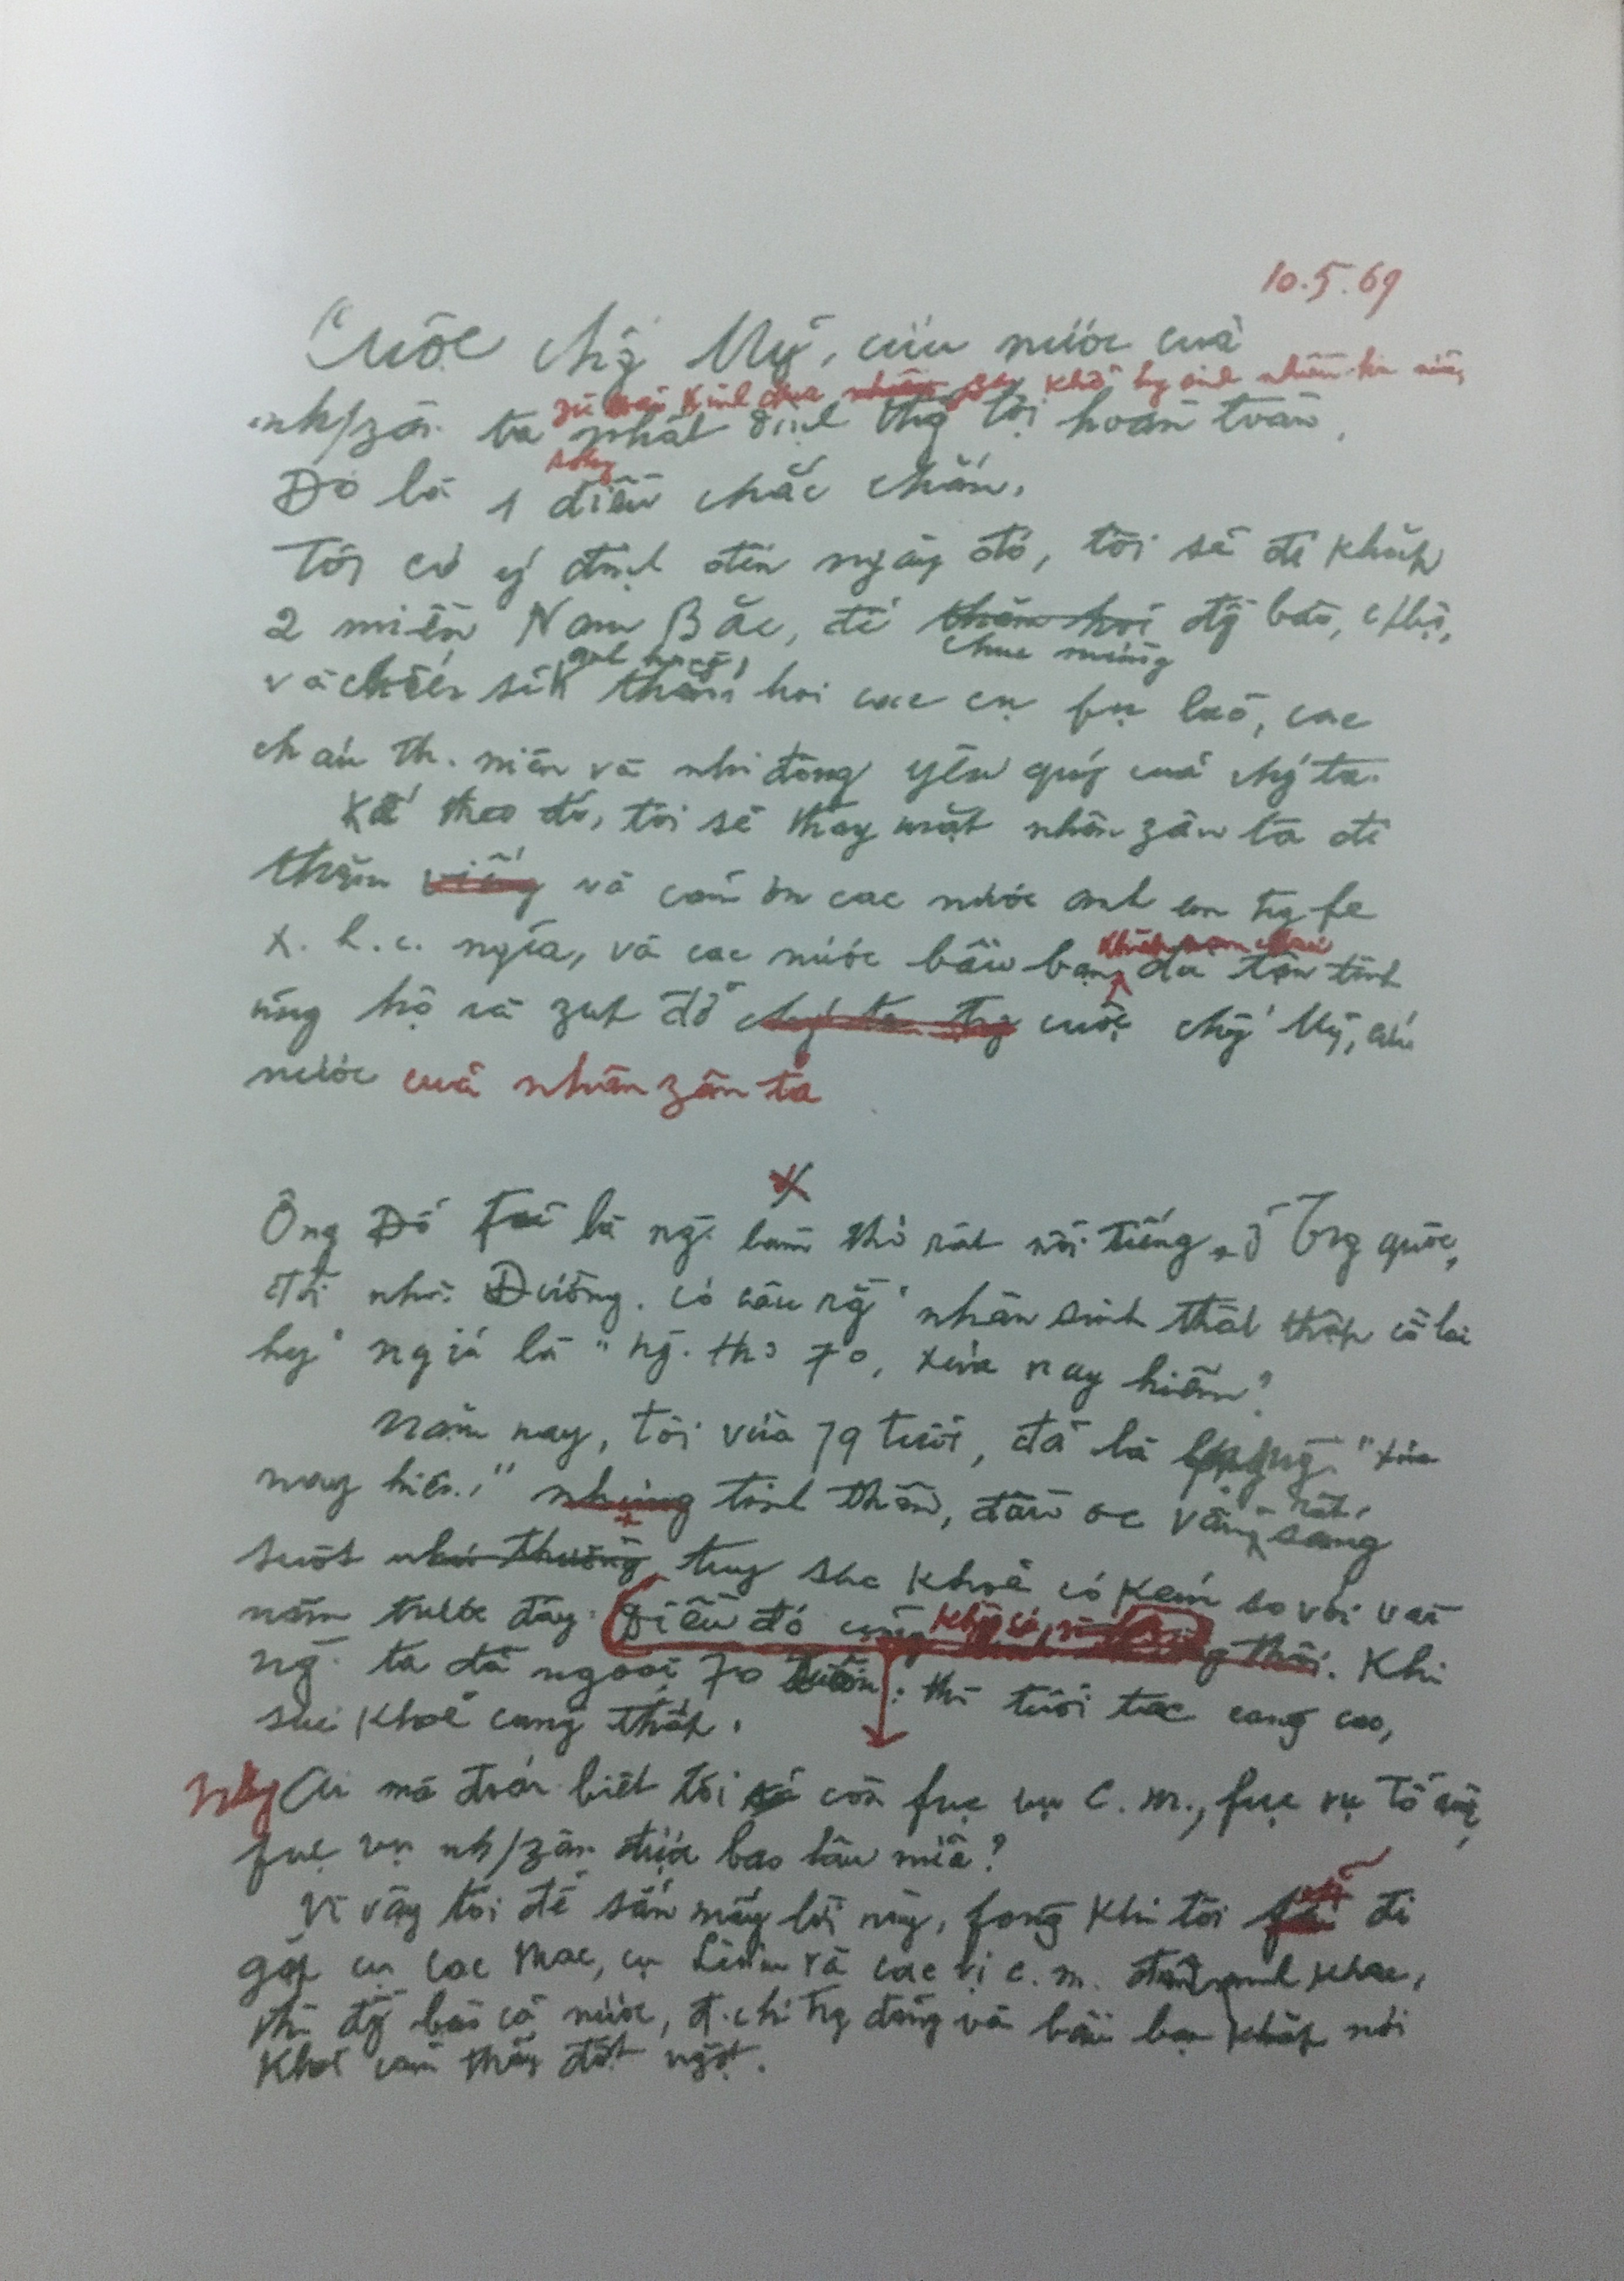 10.5.69
Cuộc chốg Mỹ, cứu nước của
zù fải kinh qua gian khổ hy sinh nhiều hơn nữa,
nh/zân ta nhất định thắg lợi hoàn toàn.
Đó là 1 điều chắc chắn.
Tôi có ý định đến ngày đó, tôi sẽ đi khắp
2 miền Nam Bắc, để thăm hỏi đg̀ bào, c/bộ,
chúc mừng
và chiến sĩ anh hùng, thăm hỏi các cụ fụ lão, các
cháu th. niên và nhi đồng yêu quý của chǵ ta.
Kế theo đó, tôi sẽ thay mặt nhân zân ta đi
thăm viếng và cảm ơn các nước anh em trg fe
x. h. c. nghĩa, và các nước bầu bạn khắp năm châu đã tận tình
ủng hộ và zúp đỡ chǵ ta trg cuộc chốg Mỹ, cứu
nước của nhân zân ta
Ông Đỗ Fủ là ng. làm thơ rất nổi tiếng ở Trg quốc,
đời nhà Đường. có câu rg̀ "nhân sinh thất thập cổ lai
hy" nghĩa là "ng. thọ 70, xưa nay hiếm"
Năm nay, tôi vừa 79 tuổi, đã là "xưa
nay hiếm" nhưng tinh thần, đầu óc vẫn rất sáng
suốt như thường, tuy sức khoẻ có kém so với vài
năm trước đây. Điều đó cũng không có gì lạ. Khi
ng. ta đã ngoài 70 xuân, thì tuổi tác càng cao,
sức khoẻ càng thấp.
Nhưng Ai mà đoán biết tôi còn fục vụ c. m., fục vụ Tổ quốc,
fục vụ nh/zân được bao lâu nữa?
Vì vậy tôi để sẵn mấy lời này, fòng khi tôi sẽ đi
gặp cụ Các Mác, cụ Lênin và các vị c. m. đàn anh khác,
thì đg̀ bào cả nước, đ. chí trg đảng và bầu bạn khắp nơi
khỏi cảm thấy đột ngột.